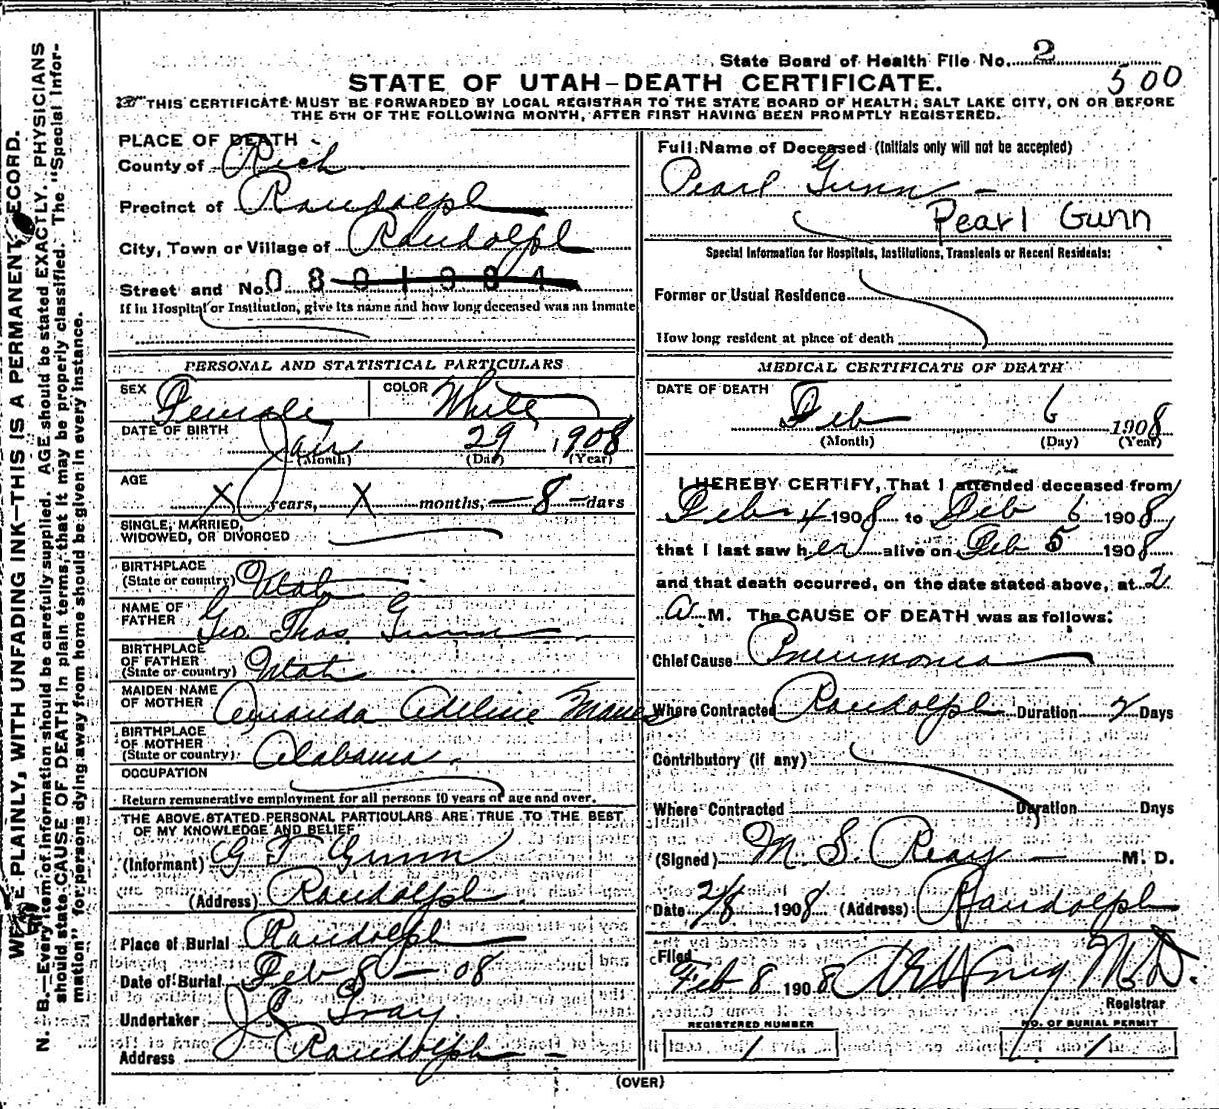 State Board of Health File No. 2
STATE OF UTAH—DEATH CERTIFICATE.
500
THIS CERTIFICATE MUST BE FORWARDED BY LOCAL REGISTRAR TO THE STATE BOARD OF HEALTH, SALT LAKE CITY, ON OR BEFORE
THE 5TH OF THE FOLLOWING MONTH, AFTER FIRST HAVING BEEN PROMPTLY REGISTERED.
PLACE OF DEATH
County of Rich
Precinct of Randolph
City, Town or Village of Randolph
Street and No. 0801984
If in Hospital or Institution, give its name and how long deceased was an inmate
Full Name of Deceased (Initials only will not be accepted)
Pearl Gunn
Pearl Gunn
Special Information for Hospitals, Institutions, Transients or Recent Residents:
Former or Usual Residence
How long resident at place of death
PERSONAL AND STATISTICAL PARTICULARS
SEX Female COLOR White
DATE OF BIRTH Jan 29 1908
(Month) (Day) (Year)
AGE X years, X months, 8 days
SINGLE, MARRIED,
WIDOWED, OR DIVORCED
BIRTHPLACE
(State or country) Utah
NAME OF
FATHER Geo. Thos Gunn
BIRTHPLACE
OF FATHER
(State or country) Utah
MAIDEN NAME
OF MOTHER Amanda Adeline
BIRTHPLACE
OF MOTHER
(State or country) Alabama.
OCCUPATION
Return remunerative employment for all persons 10 years of age and over.
THE ABOVE STATED PERSONAL PARTICULARS ARE TRUE TO THE BEST
OF MY KNOWLEDGE AND BELIEF
(Informant) G T Gunn
(Address) Randolph.
Place of Burial Randolph
Date of Burial Feb 8 - 08
Undertaker J C Gray
Address Randolph
MEDICAL CERTIFICATE OF DEATH
DATE OF DEATH
Feb 6 1908
(Month) (Day) (Year)
I HEREBY CERTIFY, That I attended deceased from
Feb 4 1908 to Feb 6 1908,
that I last saw her alive on Feb 5 1908
and that death occurred, on the date stated above, at 2
A M. The CAUSE OF DEATH was as follows:
Chief Cause Pneumonia
Where Contracted Randolph Duration 2 Days
Contributory (if any)
Where Contracted Duration Days
(Signed) M. S. Reay M. D.
Date 2/8 1908 (Address) Randolph
Filed
Feb 8 1908 M.D.
Registrar
REGISTERED NUMBER
1
NO. OF BURIAL PERMIT
1
(OVER)
WRITE PLAINLY, WITH UNFADING INK—THIS IS A PERMANENT RECORD.
N. B.—Every item of information should be carefully supplied. AGE should be stated EXACTLY. PHYSICIANS
should state CAUSE OF DEATH in plain terms, that it may be properly classified. The "Special Infor-
mation" for persons dying away from home should be given in every instance.